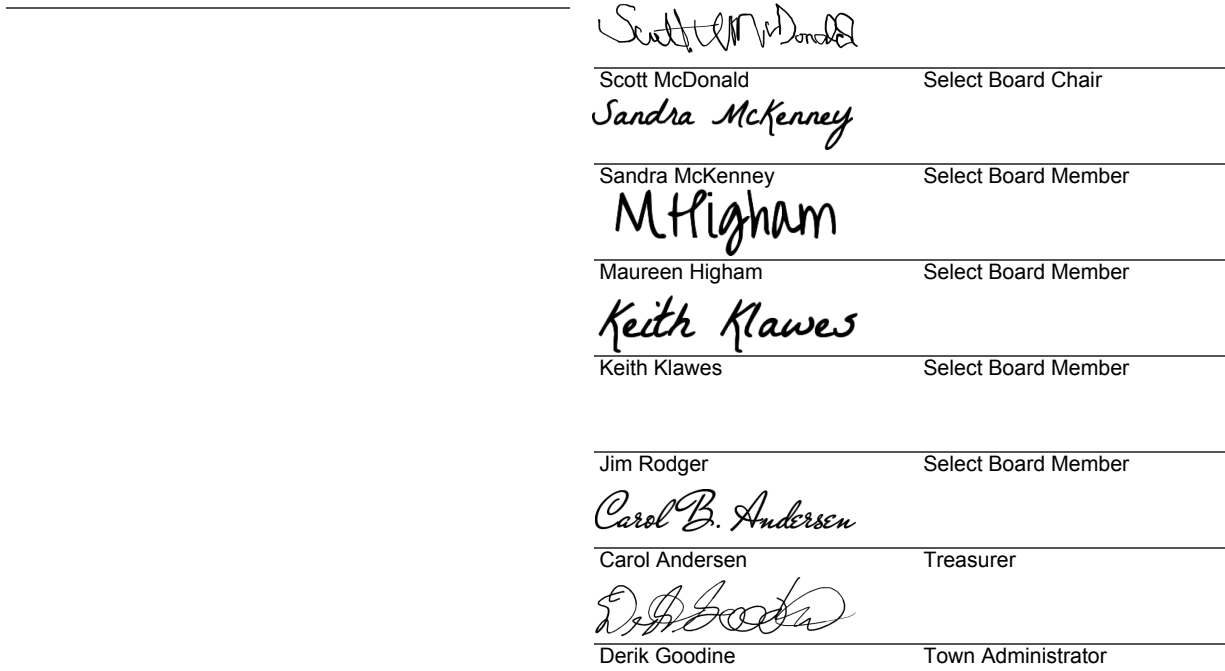 Scott McDonald
Scott McDonald Select Board Chair
Sandra McKenney
Sandra McKenney Select Board Member
M Higham
Maureen Higham Select Board Member
Keith Klawes
Keith Klawes Select Board Member
Jim Rodger Select Board Member
Carol B. Andersen
Carol Andersen Treasurer
Derik Goodine Town Administrator